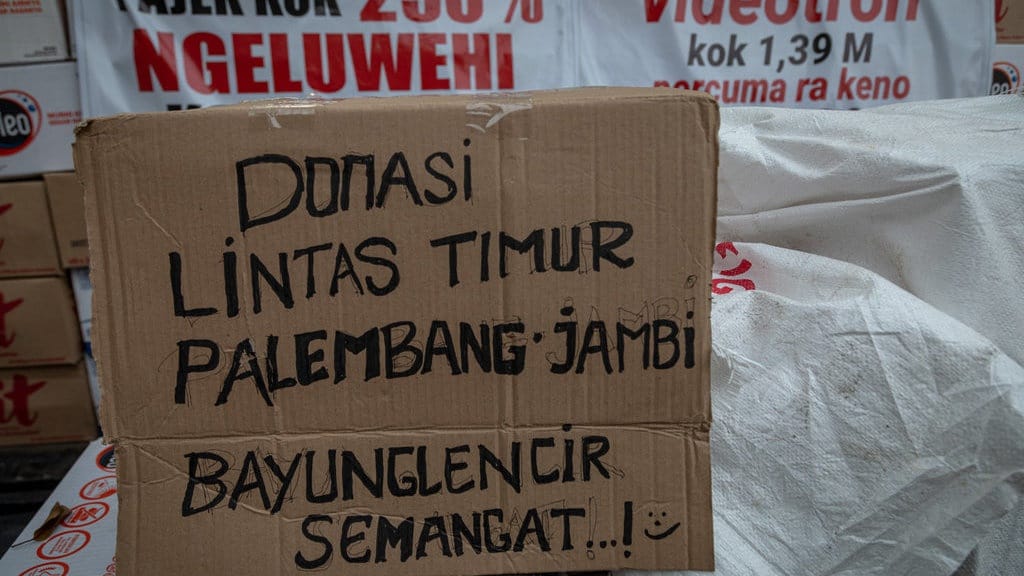 PAJEK KOK 250 %
NGELUWEHI
videotron
kok 1,39 M
percuma ra keno
DONASI
LINTAS TIMUR
PALEMBANG·JAMBI
BAYUNGLENCIR
SEMANGAT!..!